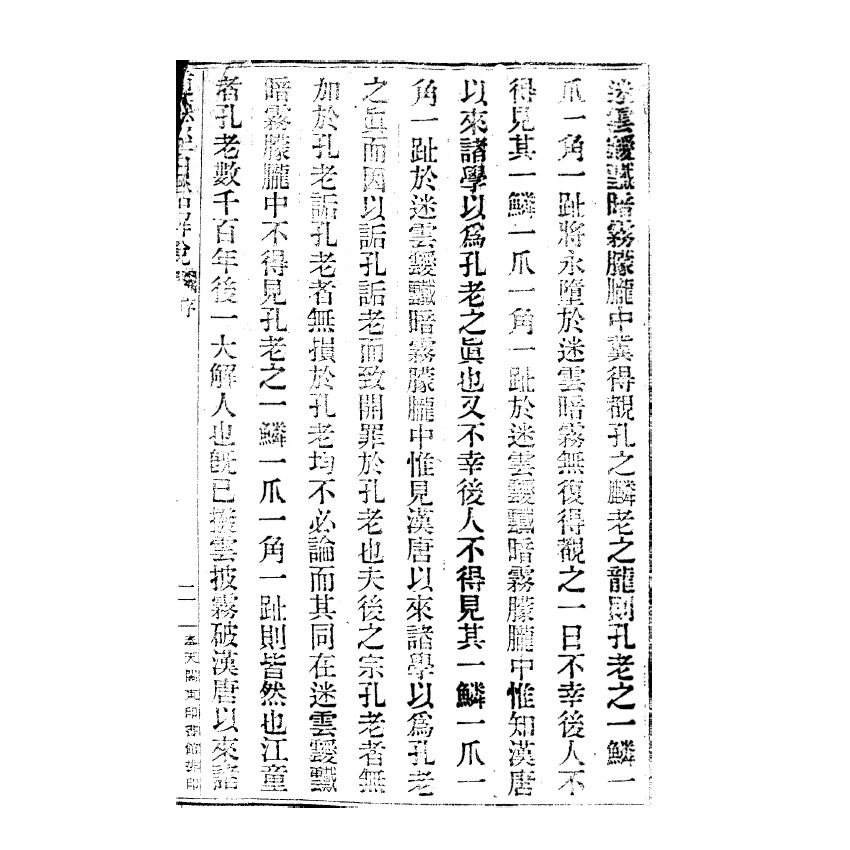 迷雲靉靆暗霧朦朧中冀得觀孔之麟老之龍則孔老之一鱗一
爪一角一趾將永墮於迷雲暗霧無復得觀之一日不幸後人不
得見其一鱗一爪一角一趾於迷雲靉靆暗霧朦朧中惟知漢唐
以來諸學以爲孔老之眞也又不幸後人不得見其一鱗一爪一
角一趾於迷雲靉靆暗霧朦朧中惟見漢唐以來諸學以爲孔老
之眞而因以詬孔詬老而致開罪於孔老也夫後之宗孔老者無
加於孔老詬孔老者無損於孔老均不必論而其同在迷雲靉靆
暗霧朦朧中不得見孔老之一鱗一爪一角一趾則皆然也江童
者孔老數千百年後一大解人也旣已撥雲披霧破漢唐以來諸
解說 序
二
奉天關東印書館印